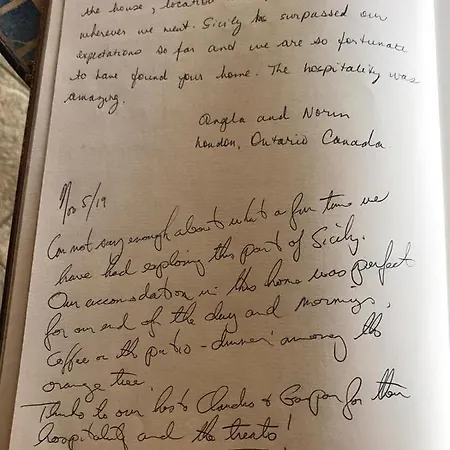 the house, location
wherever we went. Sicily has surpassed our
expectations so far and we are so fortunate
to have found your home. The hospitality was
amazing.
Angela and Norm
London, Ontario Canada
Nov 5/19
Can not say enough about what a fun time we
have had exploring this part of Sicily.
Our accomodation in this home was perfect
for an end of the day and mornings,
coffee on the patio - dinner among the
orange tree.
Thanks to our hosts Claudio & for their
hospitality and the treats!